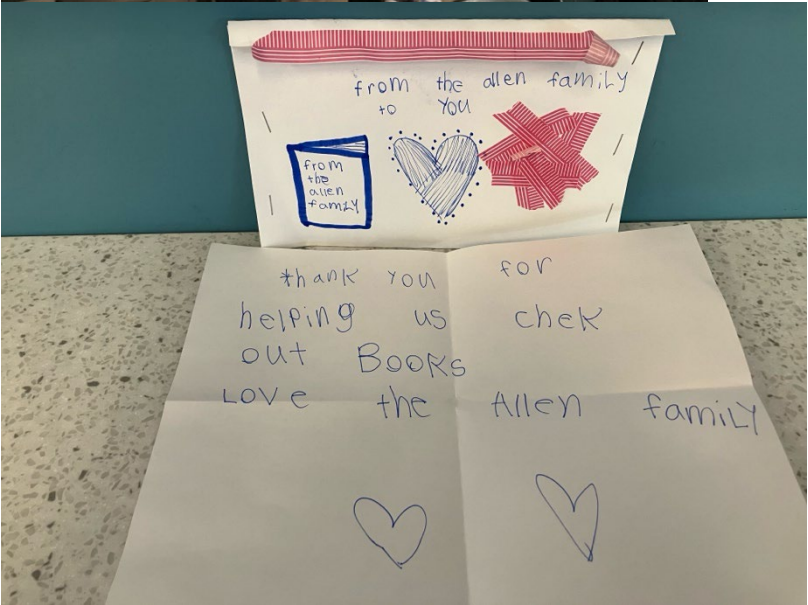 from the allen family
to YOU
from
the
allen
famILY
thank you for
helping us chek
out Books
Love the Allen family